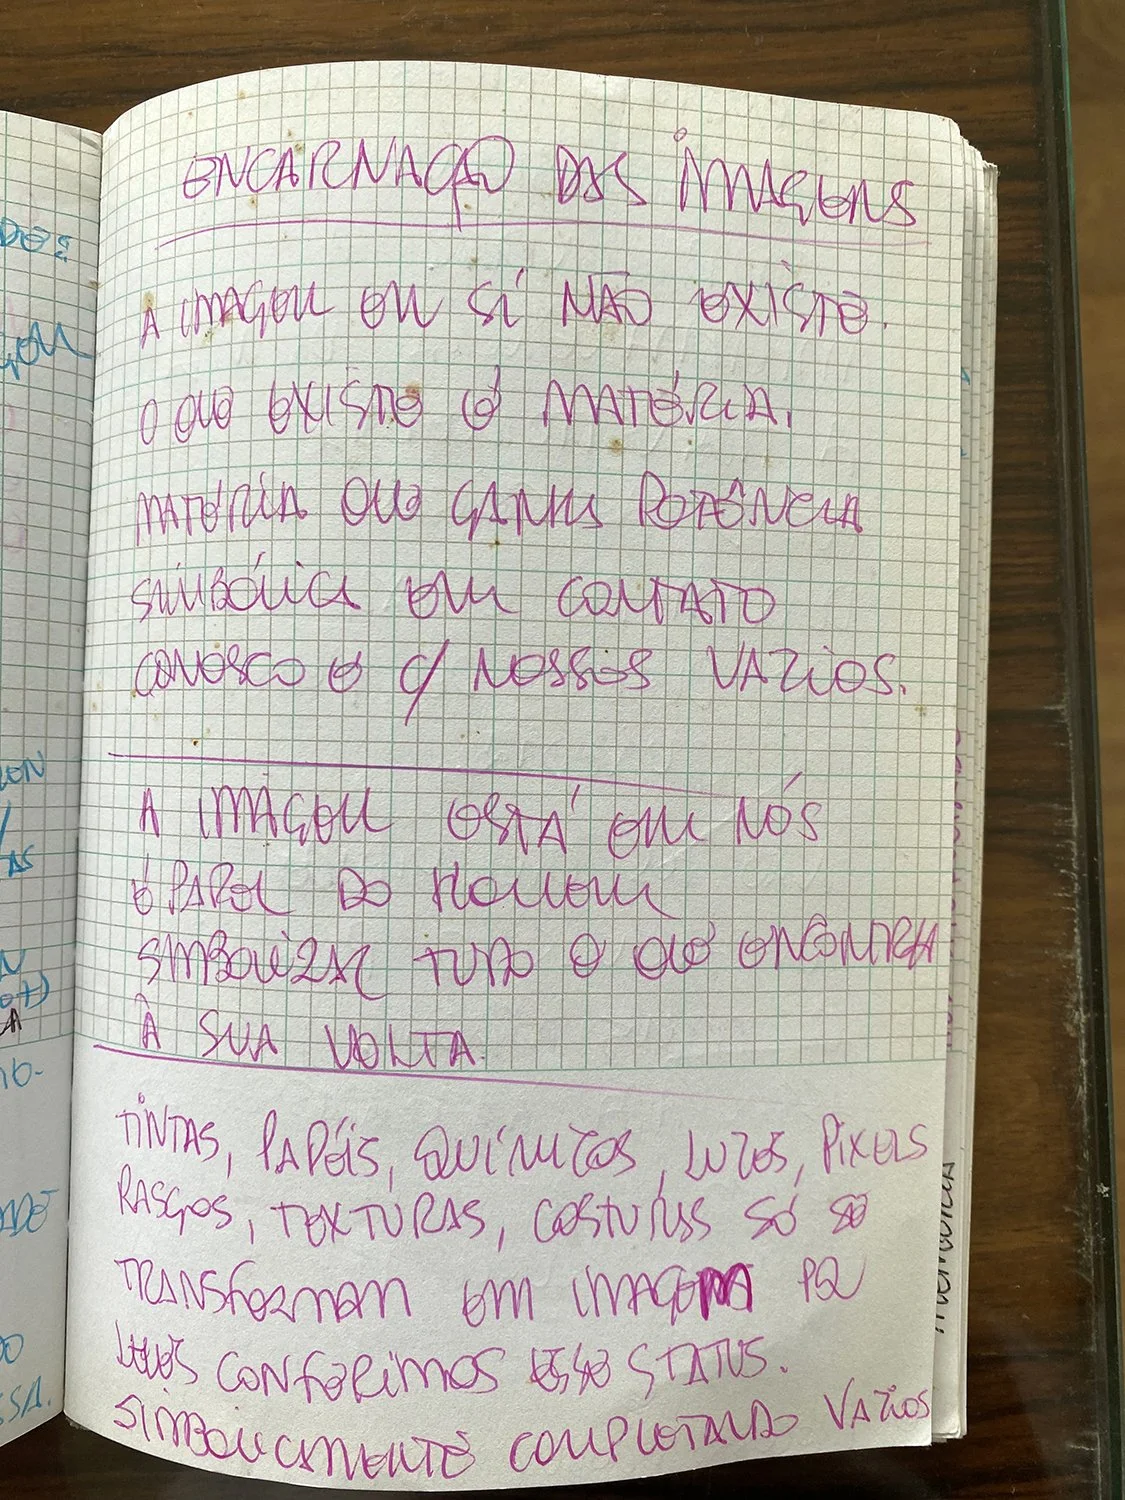 ENCARNAÇÃO DAS IMAGENS
A IMAGEM EM SÍ NÃO EXISTE.
O QUE EXISTE É MATÉRIA.
MATÉRIA QUE GANHA POTÊNCIA
SIMBÓLICA EM CONTATO
CONOSCO E C/ NOSSOS VAZIOS.
A IMAGEM ESTÁ EM NÓS
É PAPEL DO HOMEM
SIMBOLIZAR TUDO O QUE ENCONTRA
À SUA VOLTA.
TINTAS, PAPÉIS, QUÍMICOS, LUZES, PIXELS
RASGOS, TEXTURAS, COSTURAS SÓ SE
TRANSFORMAM EM IMAGEM PQ
CONFERIMOS ESSE STATUS.
SIMBOLICAMENTE COMPLETANDO VAZIOS